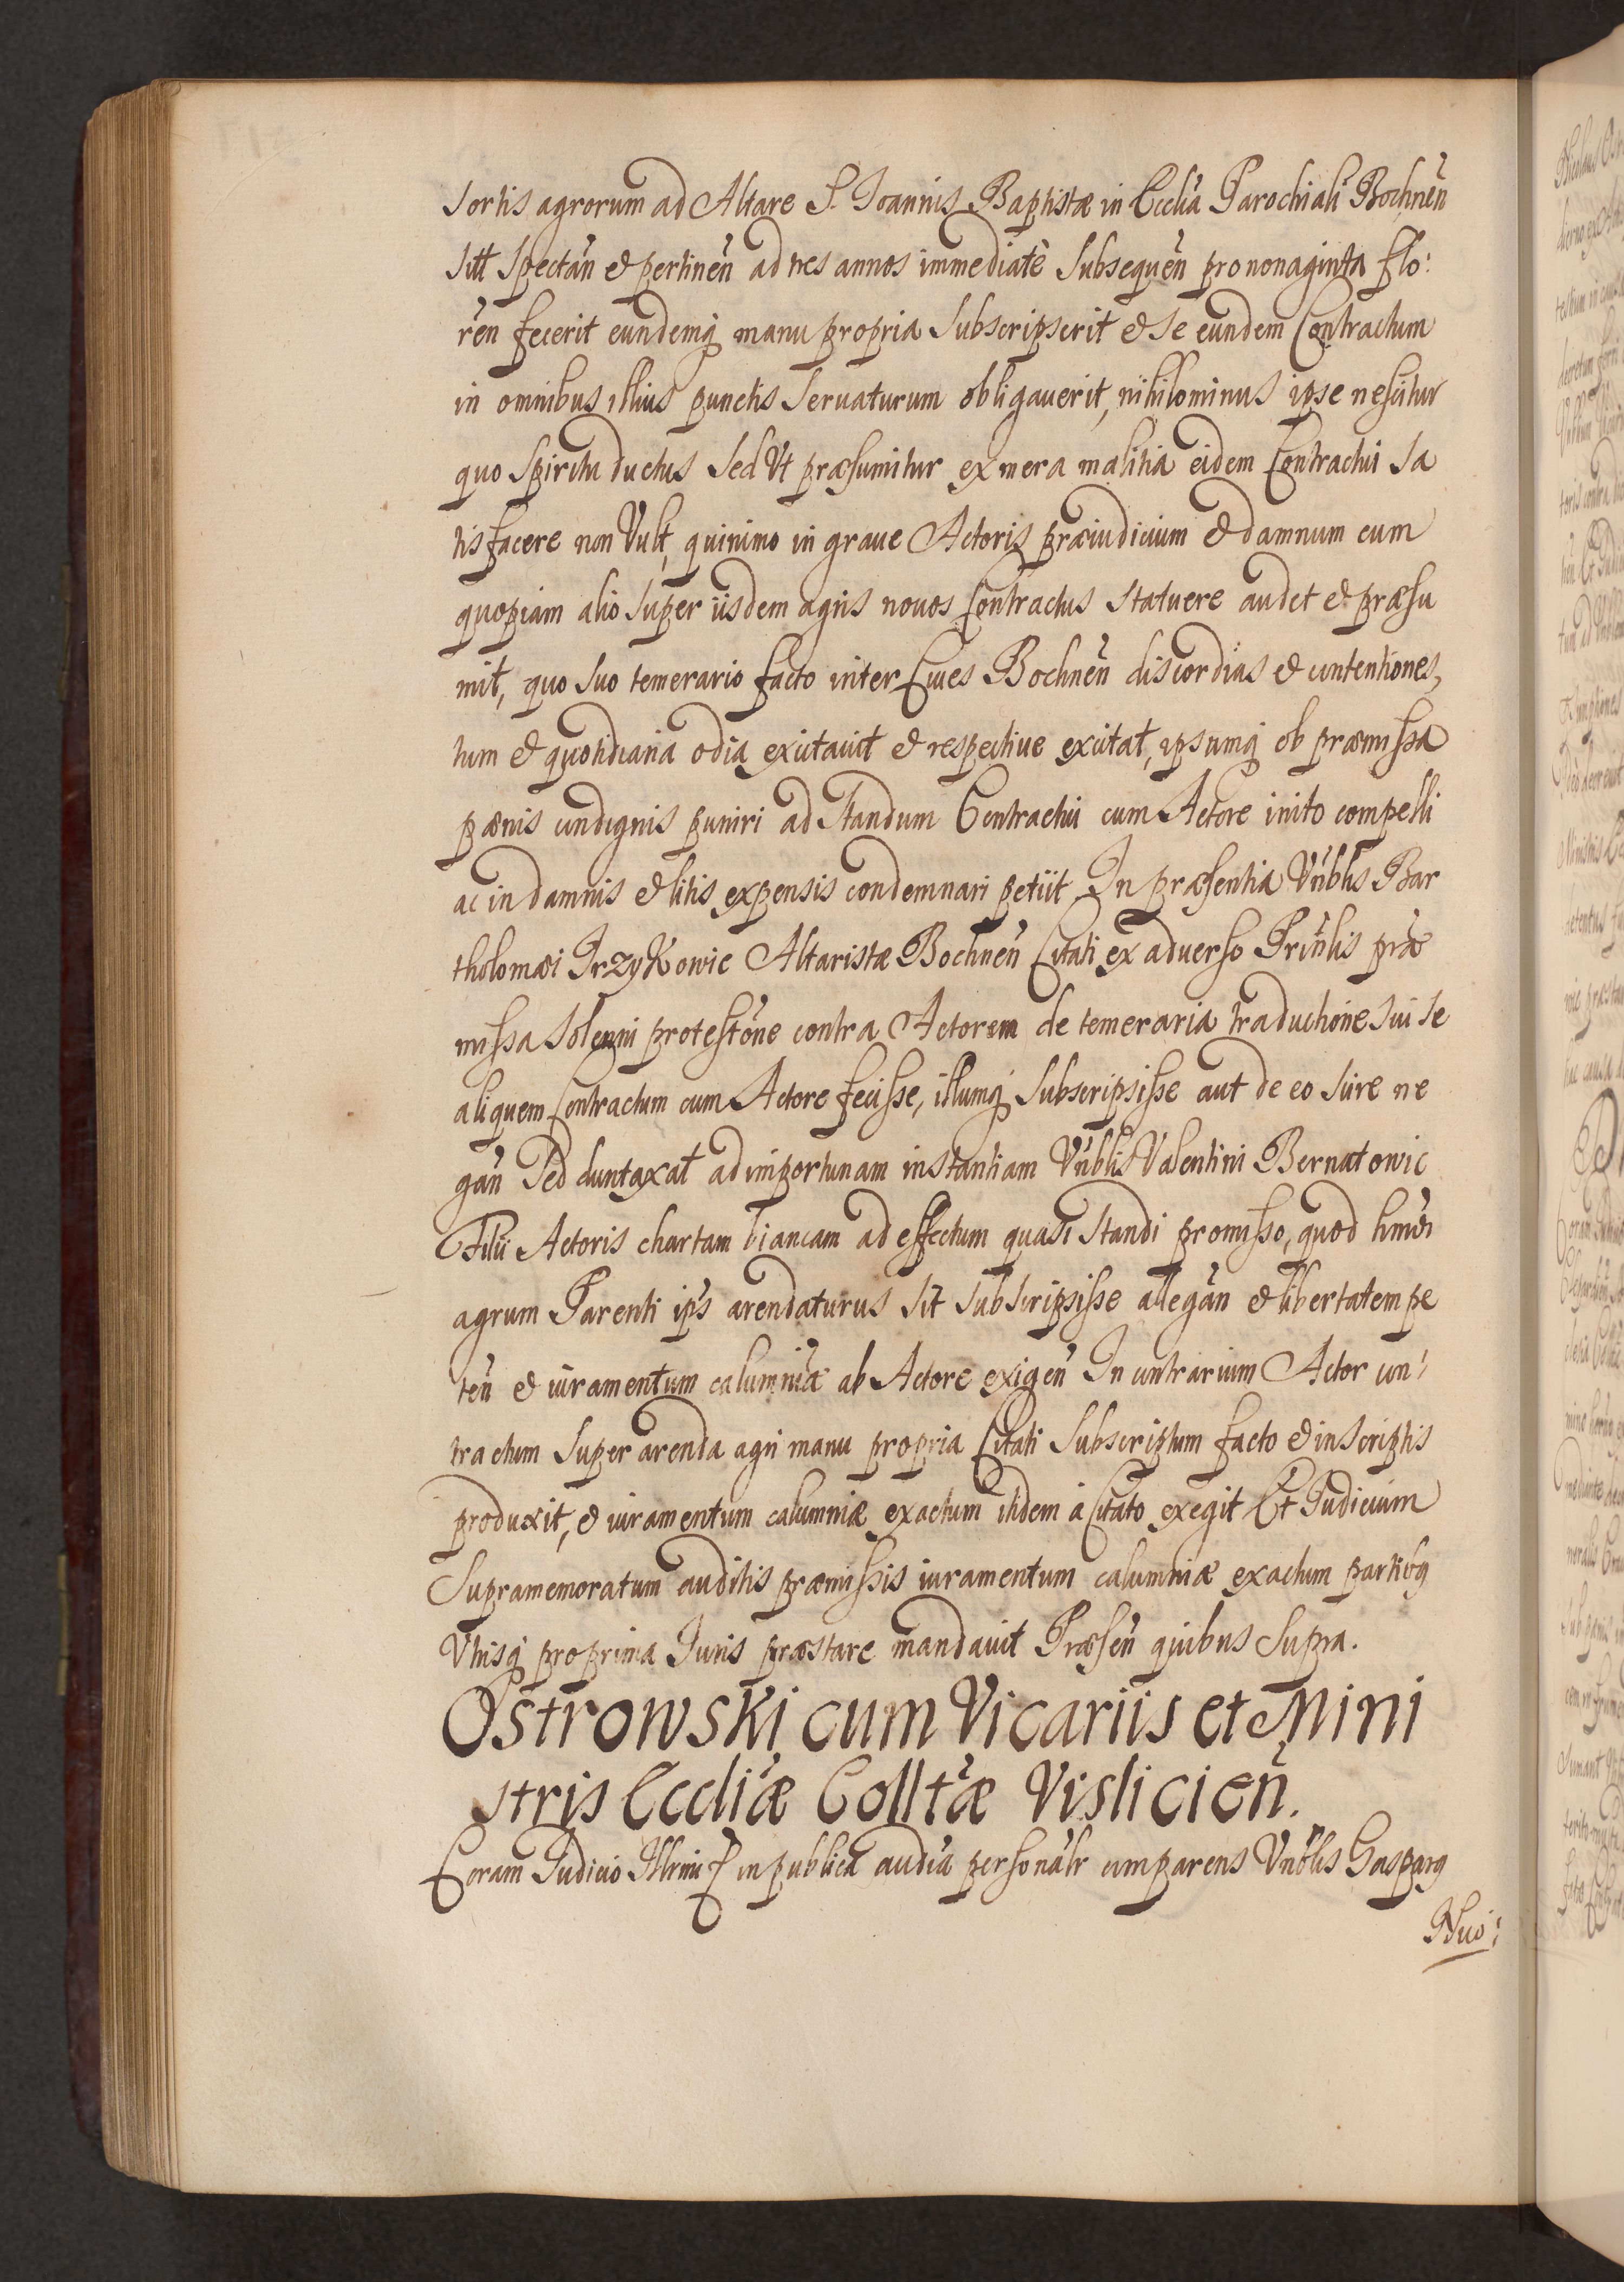 Sortis agrorum ad Altare S. Joannis Baptistæ in Ecclia Parochiali Bochnen̄
sitt spectan̄ et pertinen̄ ad tres annos immediatè subsequen̄ pro nonaginta flo:
ren̄ fecerit eundemq̨ manu propria subscripserit et se eundem Contractum
in omnibus illius punctis servaturum obligauerit, nihilominus ipse nescitur
quo spiritu ductus sed Vt præsumitur ex mera malitia eidem Contractui sa
tisfacere non Vult, quinimo in graue Actoris præiudicium et damnum cum
quopiam alio super iisdem agris nouos Contractus statuere audet et præsu
mit, quo suo temerario facto inter Ciues Bochnen̄ discordias et contentiones,
tum et quotidiana odia excitauit et respectiue excitat, ipsumq̨ ob præmissa
pænis condignis puniri ad standum Contractui cum Actore inito compelli
ac in damnis et litis expensis condemnari petiit In præsentia Vnblis Bar
tholomæi Jrzykowic Altaristæ Bochnen̄ Citati ex aduerso Prinlis præ
missa solenni protestōne contra Actorem de temeraria traductione sui se
aliquem Contractum cum Actore fecisse, illumq̨ subscripsisse aut de eo scire ne
gan̄ sed duntaxat ad importunam instantiam Vnblis Valentini Bernatowic
Filii Actoris chartam biancam ad effectum quasi standi promisso, quod hmōi
agrum Parenti ips̄ arendaturus sit subscripsisse allegan̄ et libertatem pe
ten̄ et iuramentum calumniæ ab Actore exigen̄ In contrarium Actor con:
tractum super arenda agri manu propria Citati subscriptum facto et in scriptis
produxit, et iuramentum calumniæ exactum itidem à Citato exegit Et Judicium
Supramemoratum auditis præmissis iuramentum calumniæ exactum partibq̨
Vtrisq̨ pro prima Juris præstare mandauit Præsen̄ quibus supra.
Ostrowski cum Vicariis et Mini
stris Eccliæ Colltæ Vislicien̄.
Coram Judicio Illrmi P in publica audia personalr comparens Vnblis Gasparq̨